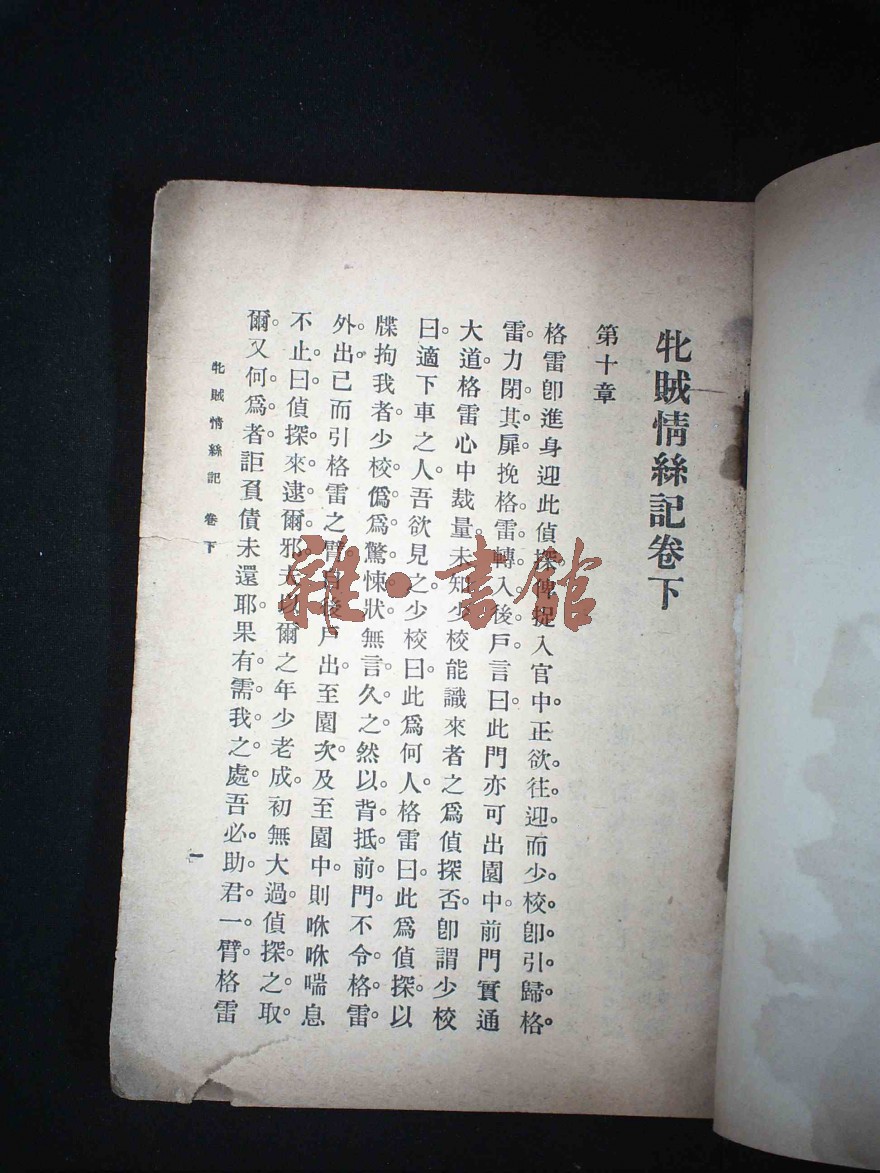 牝賊情絲記卷下
第十章
格雷卽進身迎此偵探俾捉入官中正欲往迎而少校卽引歸格
雷力閉其扉挽格雷轉入後戶言曰此門亦可出園中前門實通
大道格雷心中裁量未知少校能識來者之爲偵探否卽謂少校
曰適下車之人吾欲見之少校曰此爲何人格雷曰此爲偵探以
牒拘我者少校僞爲驚悚狀無言久之然以背抵前門不令格雷
外出已而引格雷之臂自後戶出至園次及至園中則咻咻喘息
不止曰偵探來逮爾邪夫以爾之年少老成初無大過偵探之取
爾又何爲者詎負債未還耶果有需我之處吾必助君一臂格雷
牝賊情絲記 卷下
一
雜·書館